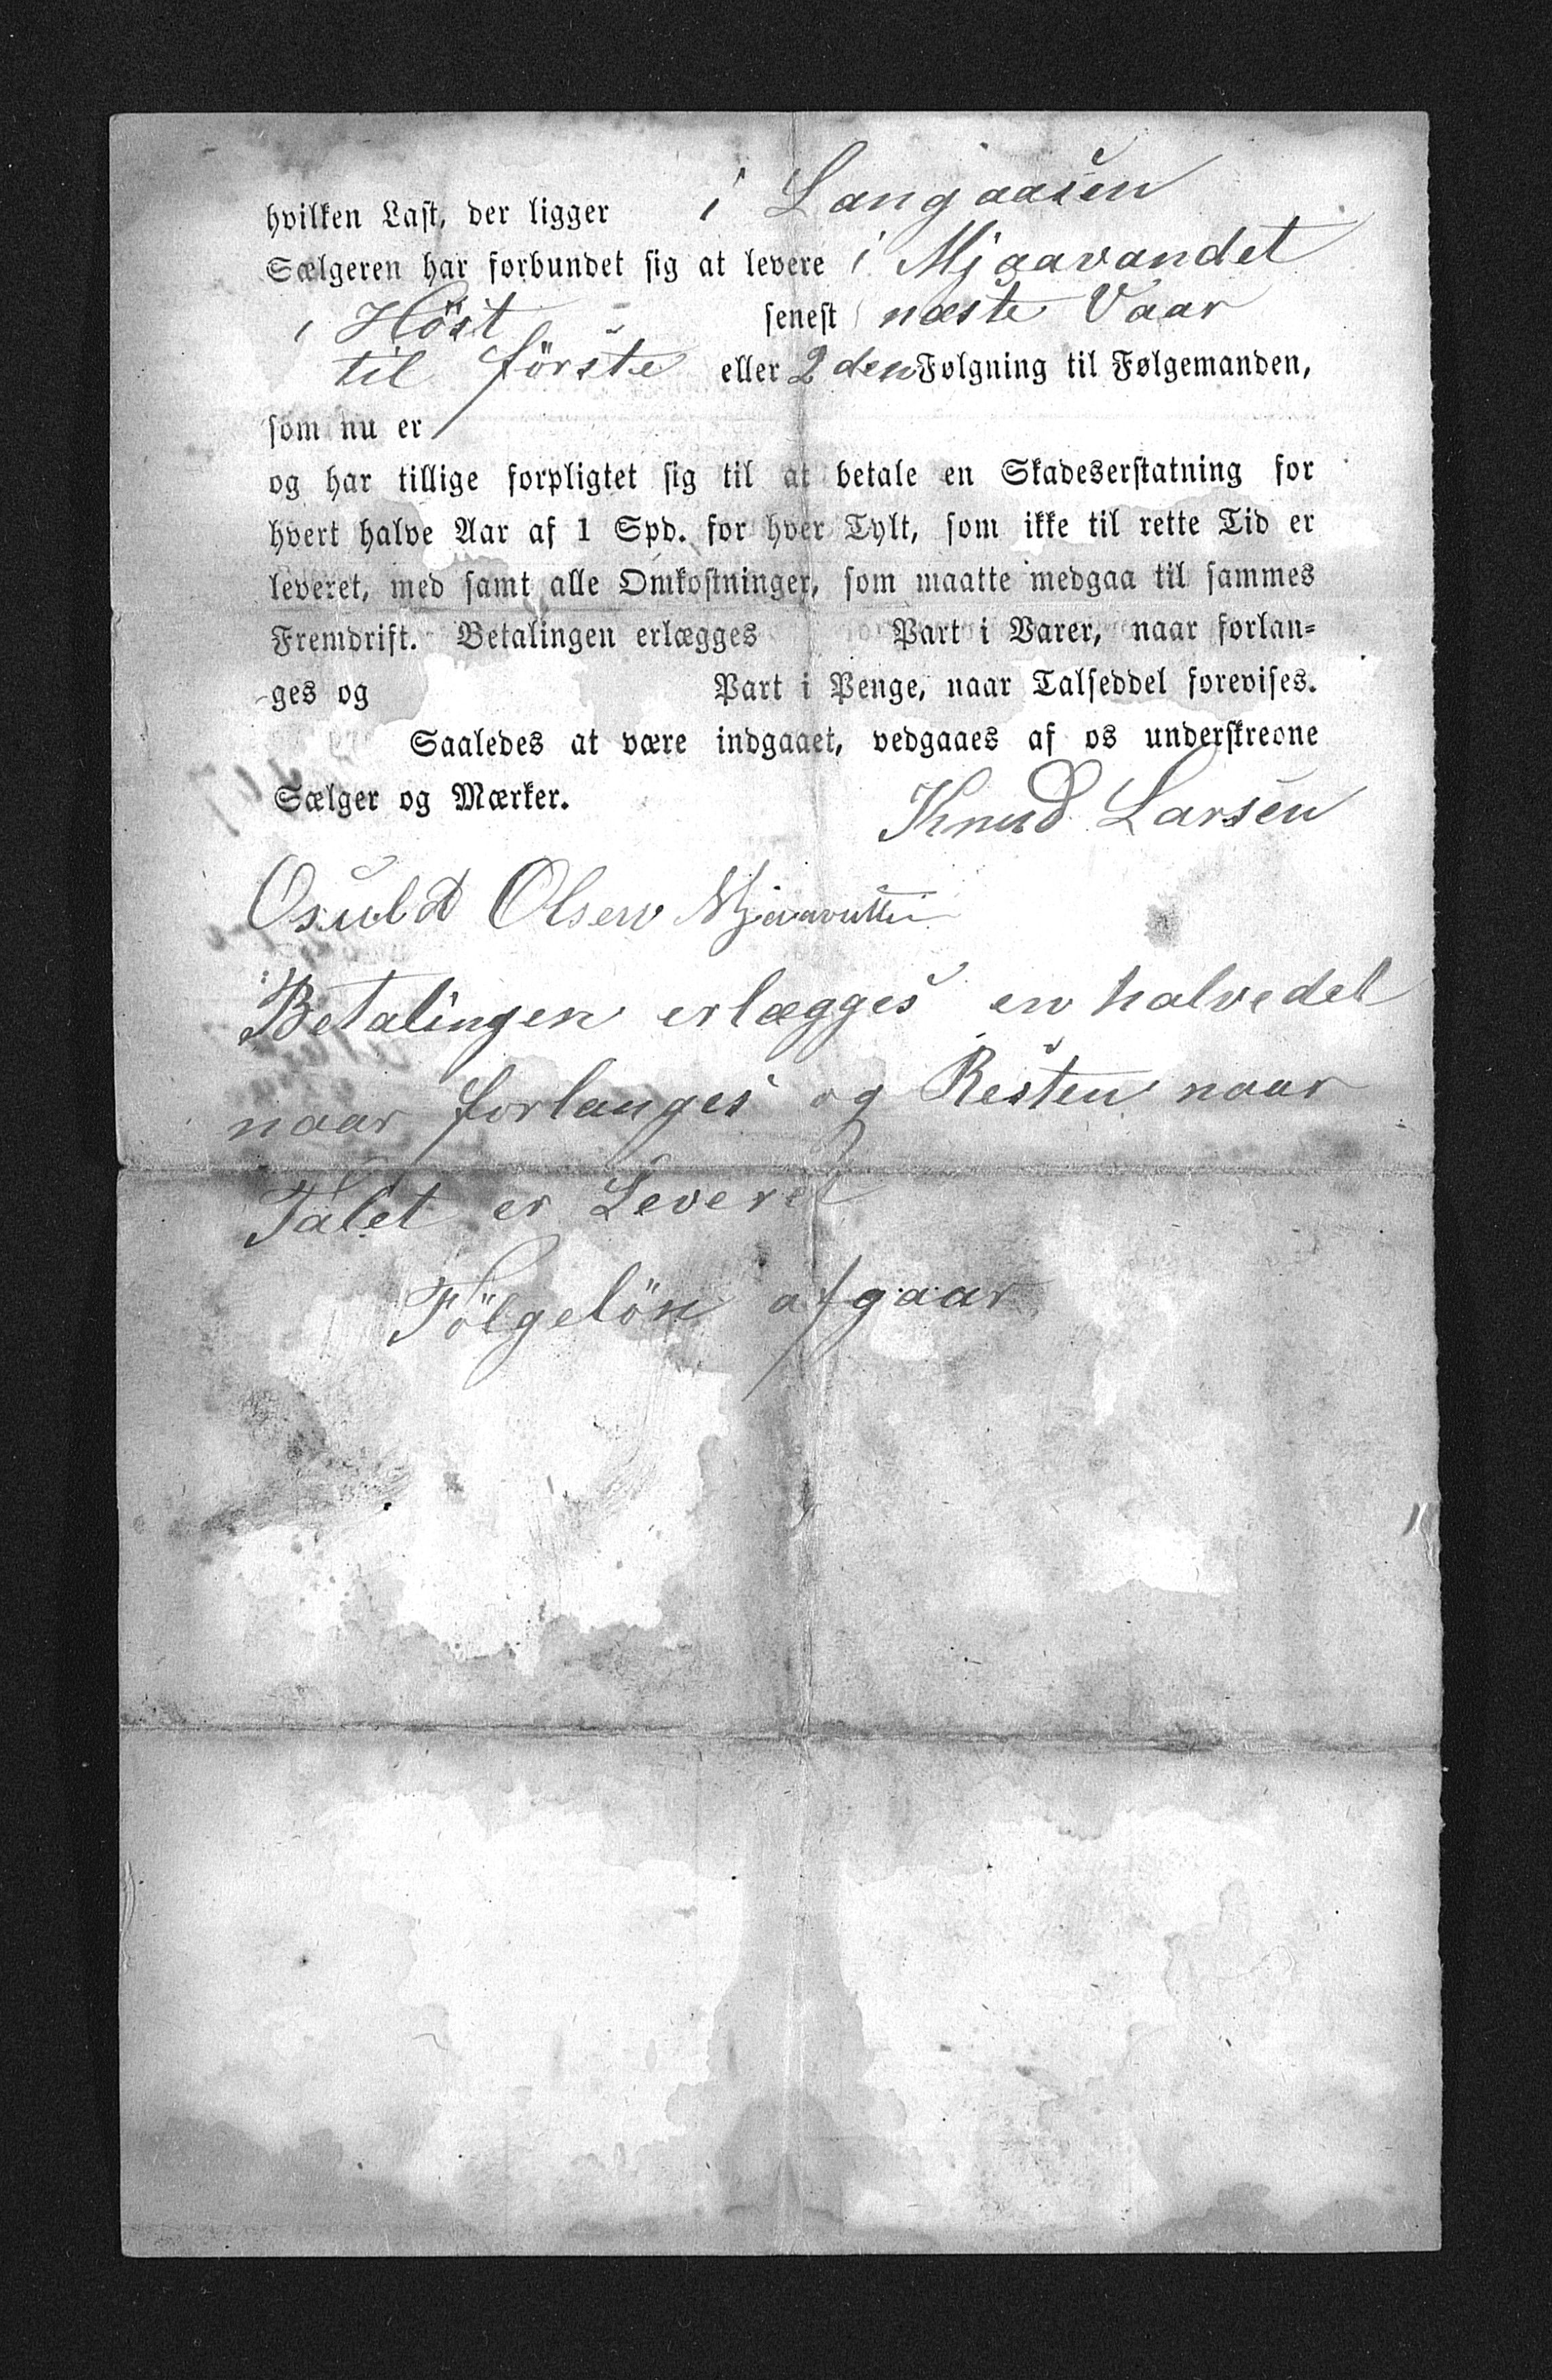 hvilken Last, der ligger i Langaasen
Sælgeren har forbundet sig at levere i Mjaavandet
i Höst - senest næste Vaar
til förste eller 2den Følgning til Følgemanden,
som nu er
og har tillige forpligtet sig til at betale en Skadeserstatning for
hvert halve Aar af 1 Spd. for hver Tylt, som ikke til rette Tid er
leveret, med samt alle Omkostninger, som maatte medgaa til sammes
Fremdrift. Betalingen erlægges Part i Varer, naar forlan-
ges og Part i Penge, naar Talseddel forevises.
Saaledes at være indgaaet, vedgaaes af os underskrevne
Sælger og Mærker.
Knud Larsen
Osuld Olsen
Betalingen erlægges en halvedel
naar forlanges og Resten naar
Talet er Leveret
Fölgelön afgaar